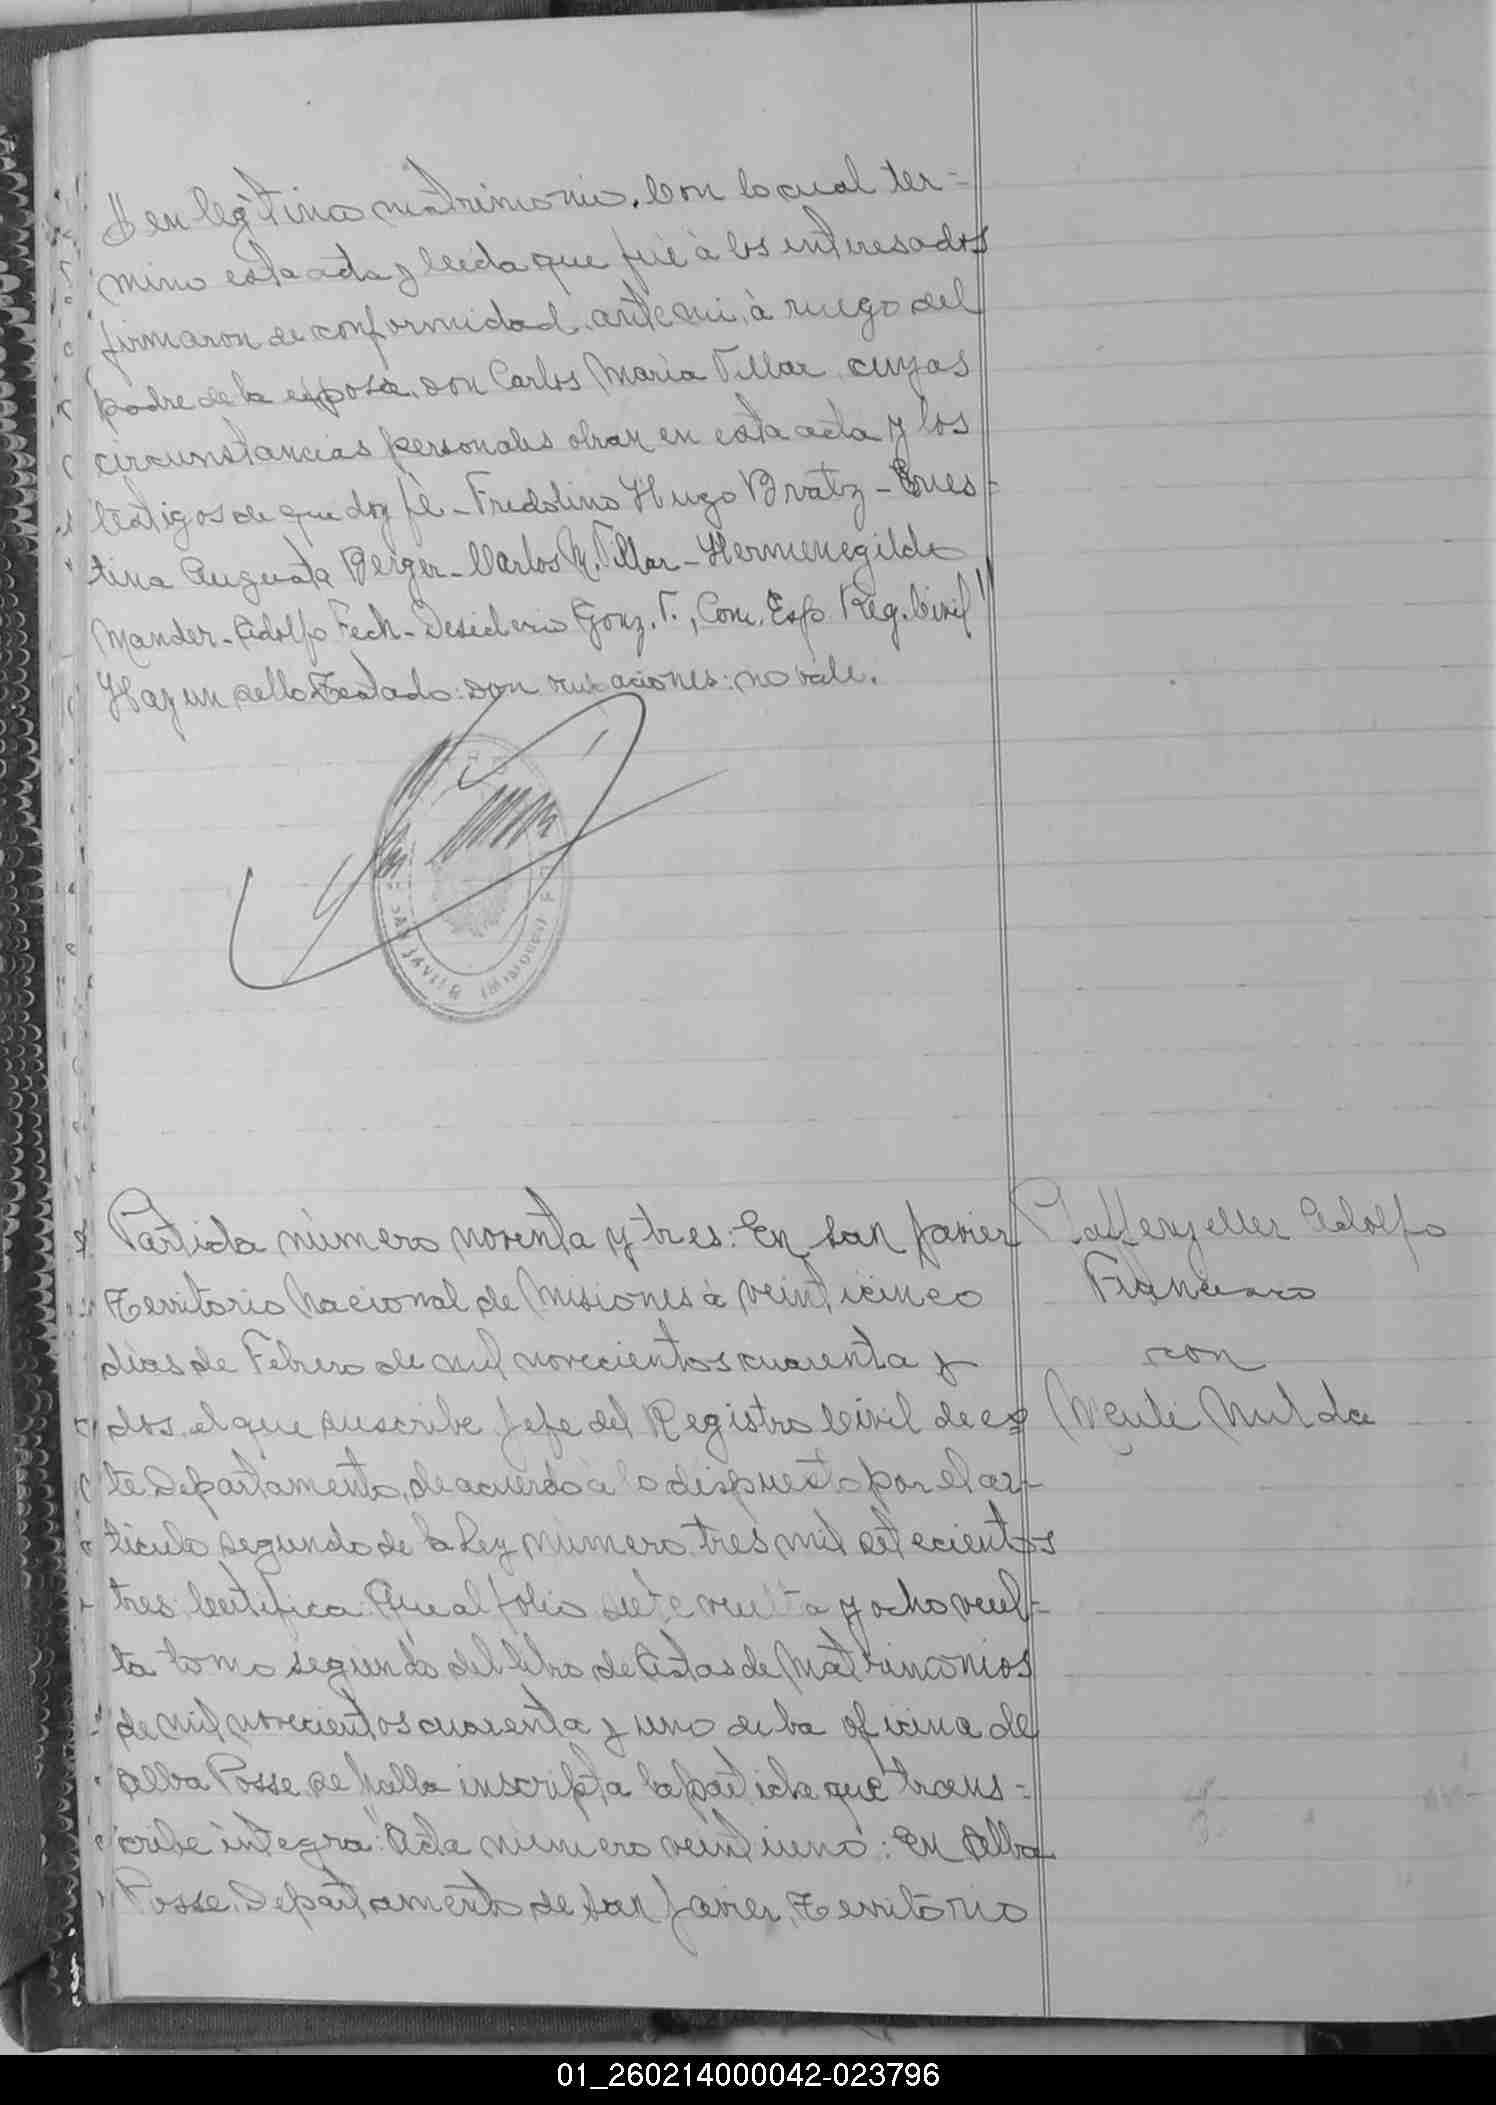 en legitimo matrimonio. Con lo cual ter=
mino esta acta y leida que fué à los interesados
firmaron de conformidad ante mi, à ruego del
padre de la esposa, don Carlos Maria Villar cuyas
circunstancias personales obran en esta acta y los
testigos de que doy fé - Fredolino Hugo Bratz - Ernes=
tina Augusta Berger - Carlos M. Villar - Hermenegildo
Mander - Adolfo Fech - Desiderio Gonz. V., Com. Esp. Reg. Civil"
Hay un sello Testado: don : no vale.
SAN JAVIER (Misiones)
Partida número noventa y tres: En San Javier
Territorio Nacional de Misiones à veinticinco
dias de Febrero de mil novecientos cuarenta y
dos, el que suscribe Jefe del Registro Civil de es=
te Departamento, de acuerdo a lo dispuesto por el ar-
ticulo segundo de la Ley número tres mil setecientos
tres Certifica: Que al folio siete vuelta y ocho vuel=
ta tomo segundo del libro de Actas de Matrimonios
de mil novecientos cuarenta y uno de la oficina de
Alba Posse se halla inscripta la partida que trans=
cribe integra: "Acta número veintiuno: En Alba
Posse, Departamento de San Javier, Territorio
Adolfo
Francisco
con
Nilda
01_260214000042-023796